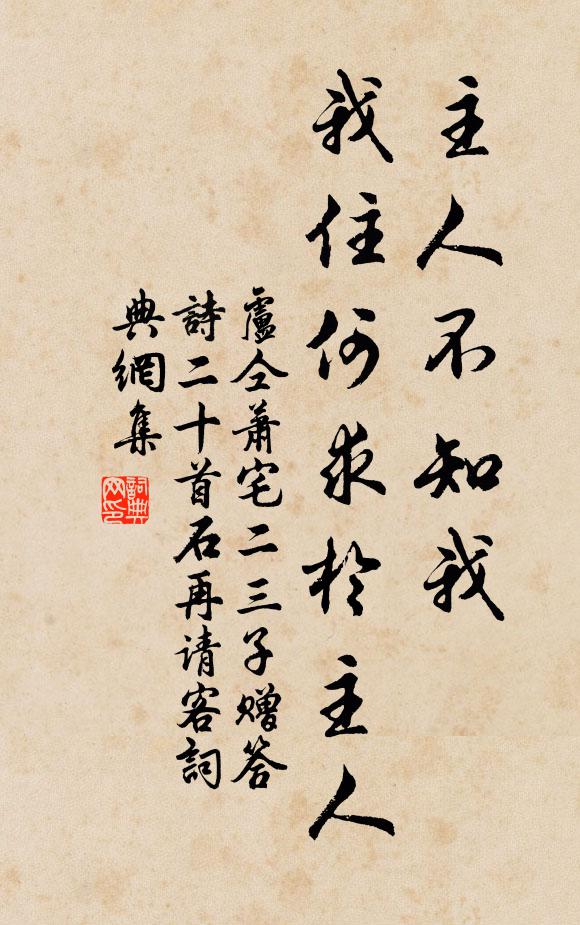 主人不知我
我住何求於主人
盧仝蕭宅二三子赠答
詩二十首石再请客詞
典網集
詞典网印